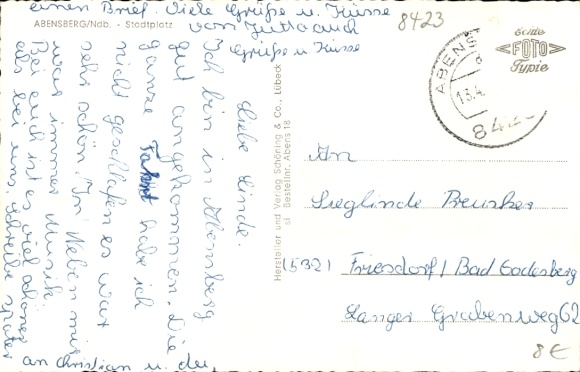 ABENSBERG/Ndb. - Stadtplatz
Liebe Linde.
Ich bin in Abensberg
gut angekommen. Die
ganze Fahrt habe ich
nicht geschlafen es war
sehr schön. In Neben mir
war immer Musik.
Bei euch ist es viel schöner
als bei uns. schreibe später
an Christian u. du,
einen Brief. Viele Grüße u. Küsse
von Jutta auch
Grüße u Küsse
8423
Echte
FOTO
Typie
ABENS
13.4.
842
Hersteller und Verlag Schöning & Co., Lübeck
Bestellnr. Abens 18
An
Sieglinde Preusker
(532) Friesdorf/Bad Godesberg
Langer Grabenweg 62
8 €